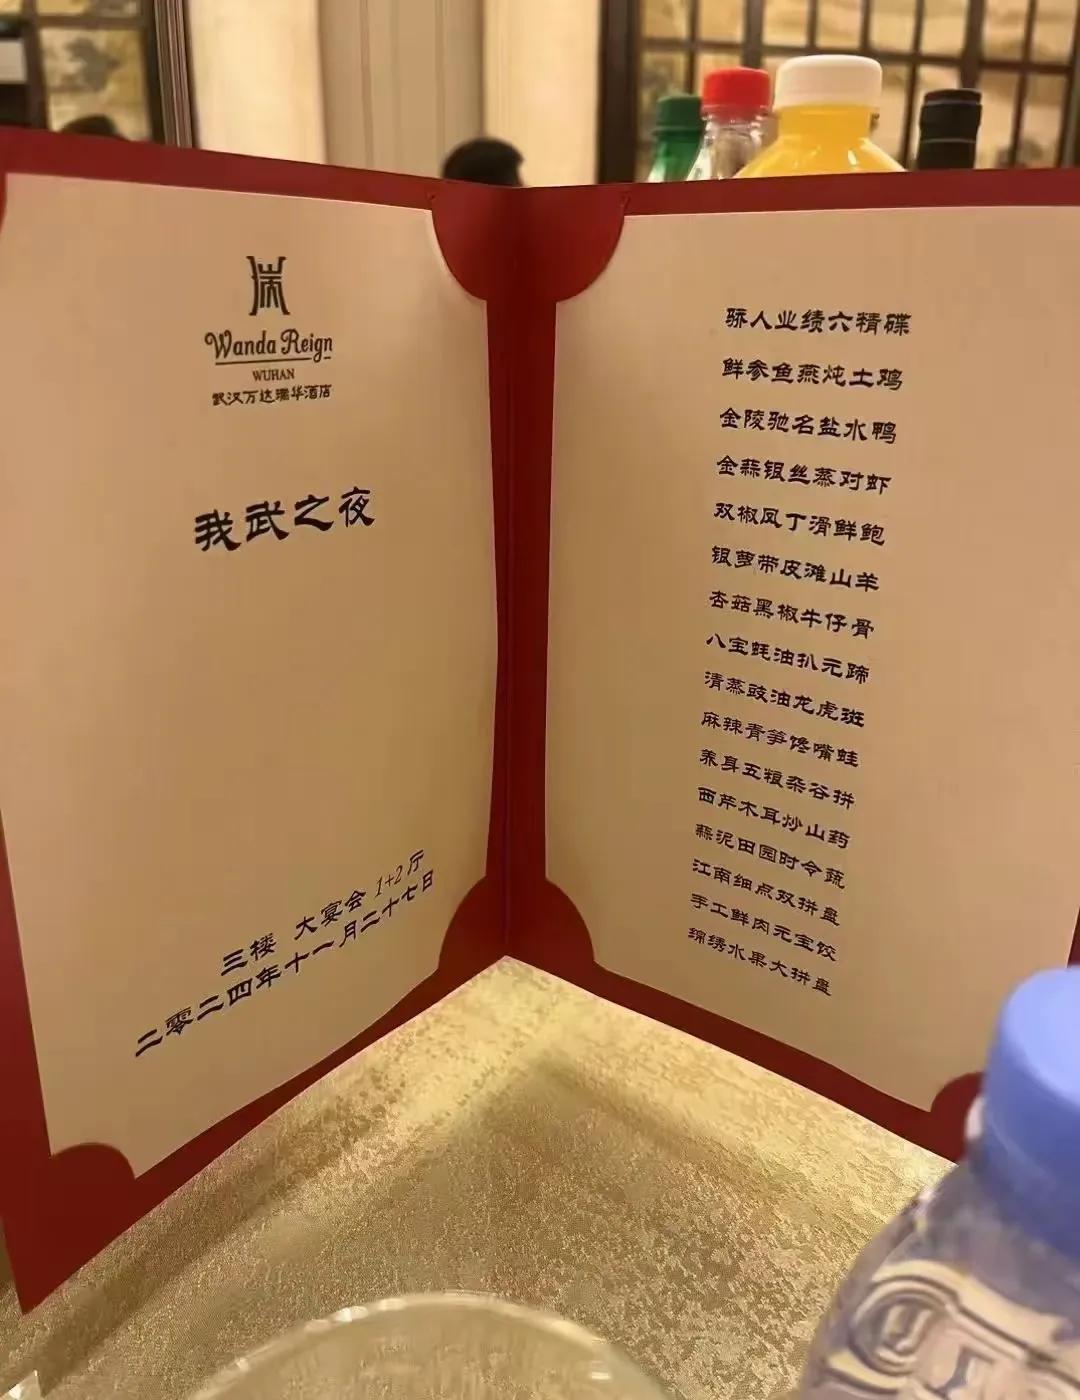 Wanda Reign
WUHAN
武汉万达瑞华酒店
我武之夜
三楼 大宴会 1+2厅
二零二四年十一月二十七日
骄人业绩六精碟
鲜参鱼燕炖土鸡
金陵驰名盐水鸭
金蒜银丝蒸对虾
双椒凤丁滑鲜鲍
银萝带皮滩山羊
杏菇黑椒牛仔骨
八宝蚝油扒元蹄
清蒸豉油龙虎斑
麻辣青笋馋嘴蛙
养身五粮杂谷拼
西芹木耳炒山药
蒜泥田园时令蔬
江南细点双拼盘
手工鲜肉元宝饺
绵绣水果大拼盘